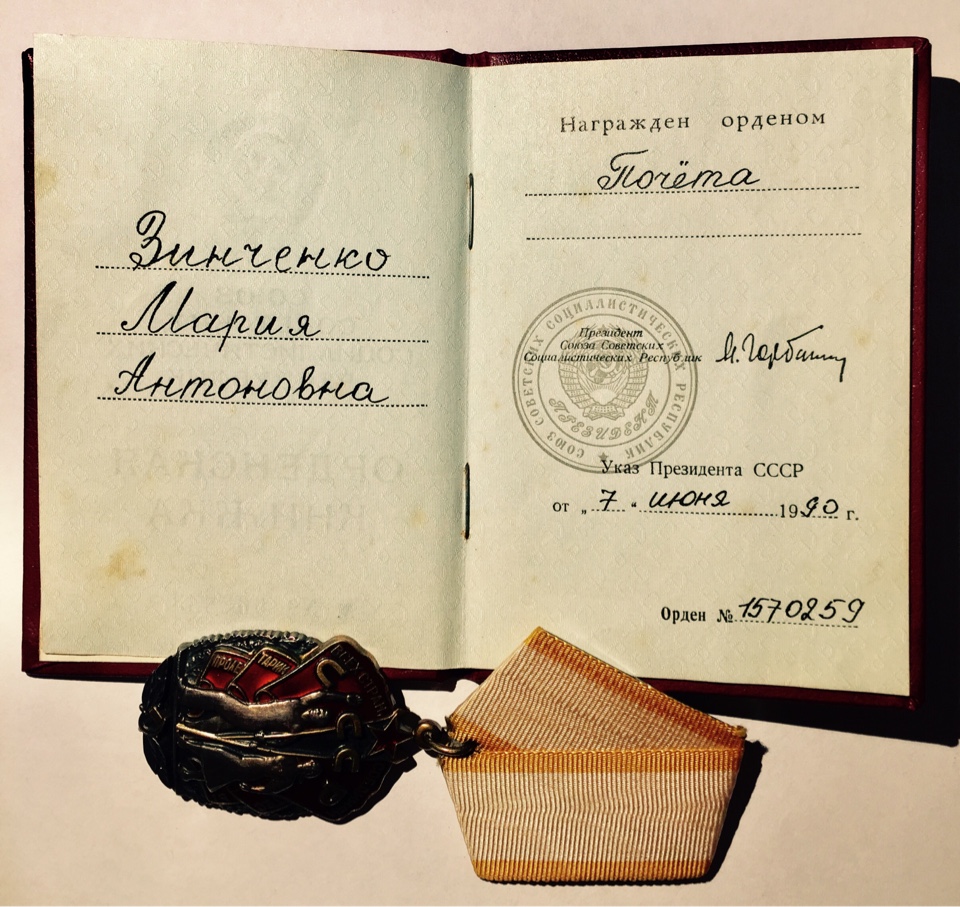 Зинченко
Мария
Антоновна
Награжден орденом
Почёта
СОЮЗ СОВЕТСКИХ СОЦИАЛИСТИЧЕСКИХ РЕСПУБЛИК
Президент
Союза Советских
Социалистических Республик
М. Горбачев
ПРЕЗИДЕНТ
Указ Президента СССР
от „ 7 “ июня 1990 г.
Орден № 1570259
ПРОЛЕ
ТАРИИ